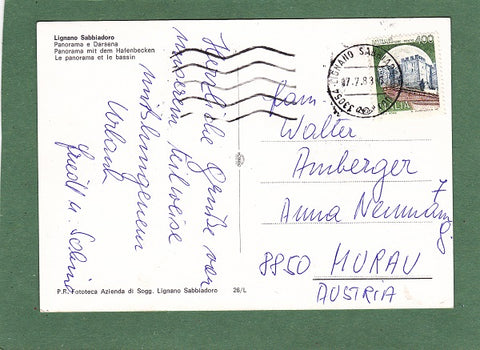 Lignano Sabbiadoro
Panorama e Darsena
Panorama mit dem Hafenbecken
Le panorama et le bassin
Herzliche Grüße von
unserem teilweise
mitslungenem
Urlaub
Friedl u.
400
33054 LIGNANO SABBIADORO
17.7.83
ITALIA
Fam.
Walter
Amberger
Anna Neumang 7
8850 MURAU
AUSTRIA
P.R. Fototeca Azienda di Sogg. Lignano Sabbiadoro 26/L